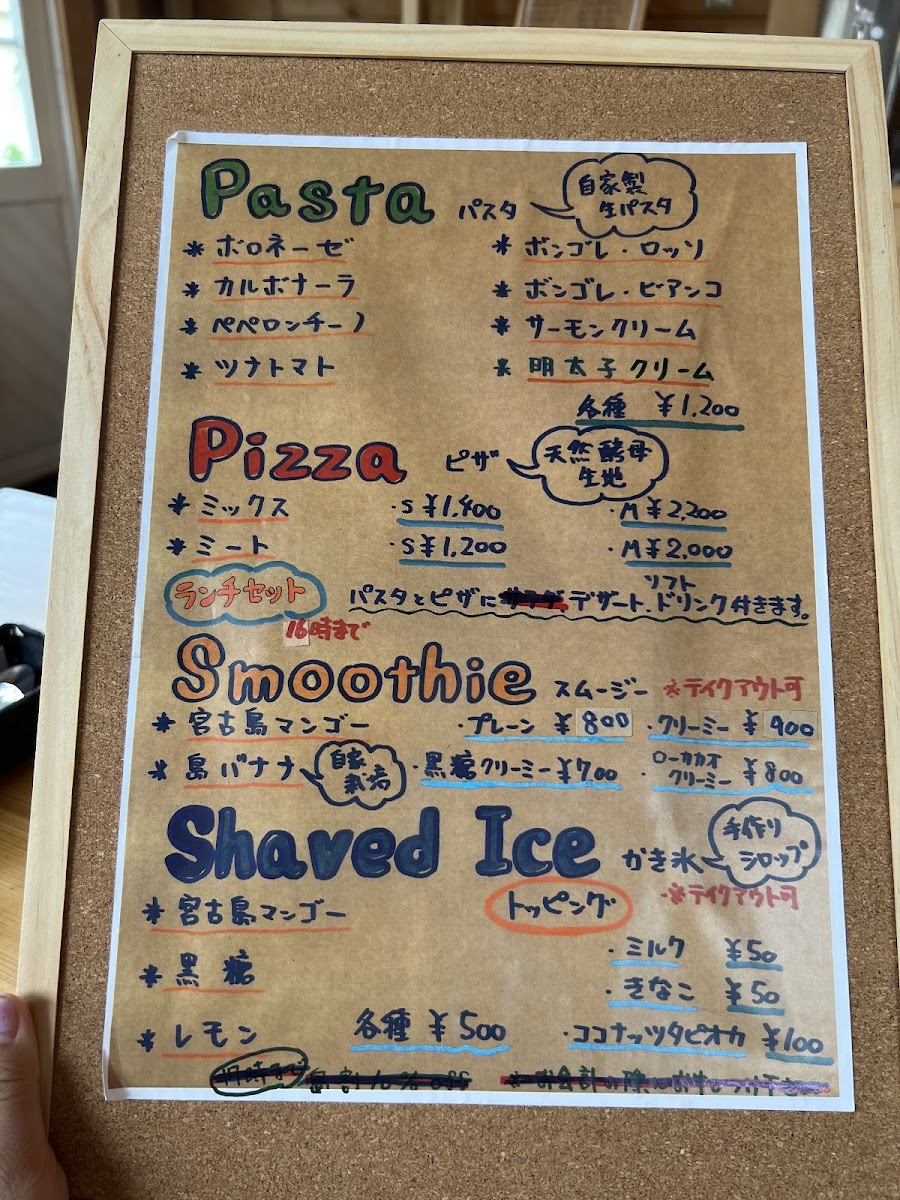 Pasta パスタ 自家製
生パスタ
* ボロネーゼ * ボンゴレ・ロッソ
* カルボナーラ * ボンゴレ・ビアンコ
* ペペロンチーノ * サーモンクリーム
* ツナトマト * 明太子クリーム
各種 ¥1,200
Pizza ピザ 天然酵母
生地
* ミックス ・S ¥1,400 ・M ¥2,200
* ミート ・S ¥1,200 ・M ¥2,000
ランチセット パスタとピザに サラダ デザート、ソフトドリンク付きます。
16時まで
Smoothie スムージー ※テイクアウト可
* 宮古島マンゴー ・プレーン ¥800 ・クリーミー ¥900
* 島バナナ 自家栽培 ・黒糖クリーミー ¥700 ・ローカカオクリーミー ¥800
Shaved Ice かき氷 手作り
シロップ
※テイクアウト可
* 宮古島マンゴー トッピング
・ミルク ¥50
* 黒糖 ・きなこ ¥50
* レモン 各種 ¥500 ・ココナッツタピオカ ¥100
10% off